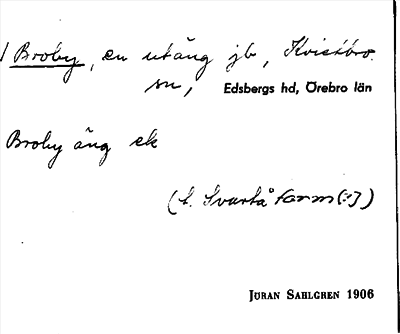 Broby, en utäng jb, Kvistbro
sn, Edsbergs hd, Örebro län
Broby äng ek
(t. Svartå form(:))
JÖRAN SAHLGREN 1906